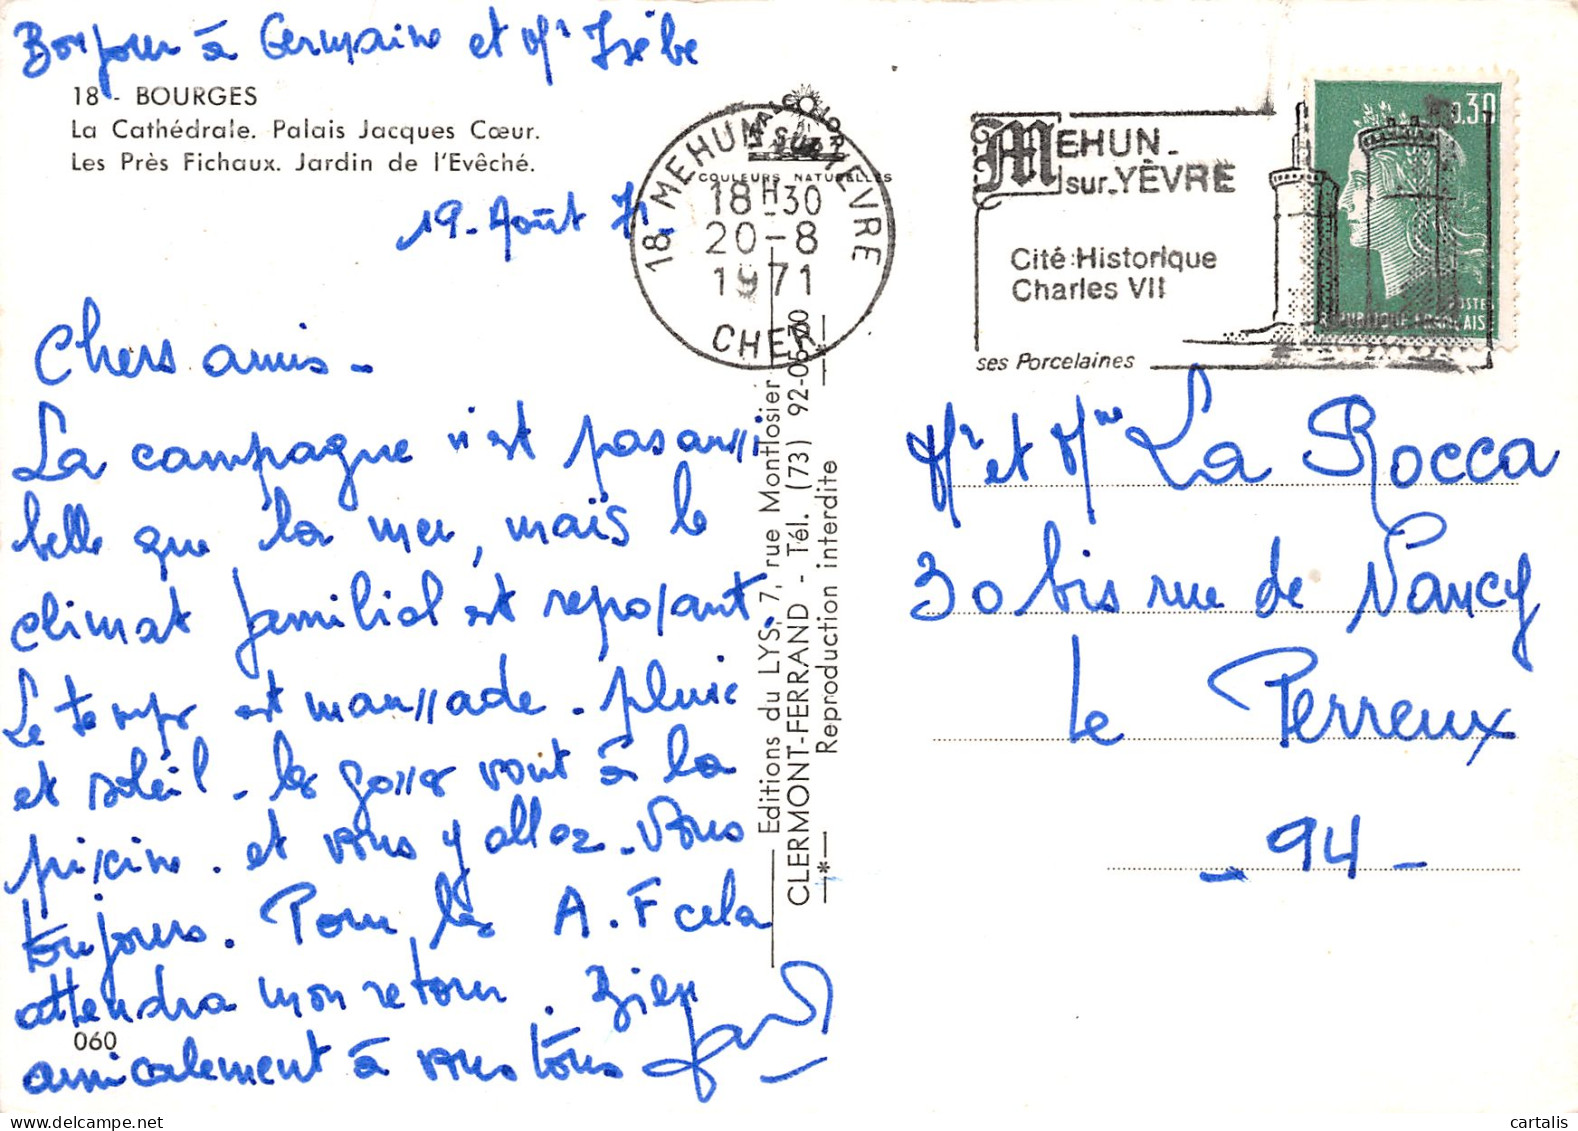 Bonjour à Germaine et Mr Isèbe
18 - BOURGES
La Cathédrale. Palais Jacques Cœur.
Les Près Fichaux. Jardin de l'Evêché.
19 - Août 71
Chers amis -
La campagne n'est pas aussi
belle que la mer, mais le
climat familial est reposant.
Le temps est maussade - pluie
et soleil - les gosses vont à la
piscine. et vous y allez - Vous
toujours. Pour les A.F cela
attendra mon retour. Bien
amicalement à vous tous
060
COULEURS NATURELLES
18 MEHUN SUR YEVRE
18H30
20-8
1971
CHER
Editions du LYS, 7, rue Montlosier
CLERMONT-FERRAND - Tél. (73) 92-05-70
Reproduction interdite
MEHUN-
sur-YÈVRE
Cité Historique
Charles VII
ses Porcelaines
0.30
POSTES
REPUBLIQUE FRANCAISE
Mr et Mme La Rocca
30 bis rue de Nancy
Le Perreux
- 94 -
cartalis